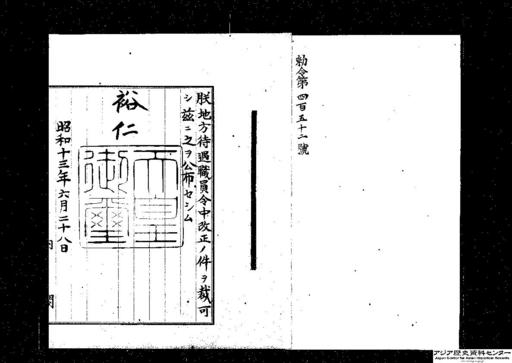 勅令第四百五十二號
朕地方待遇職員令中改正ノ件ヲ裁可
シ茲ニ之ヲ公布セシム
裕仁
天皇御璽
昭和十三年六月二十八日
内閣
アジア歴史資料センター
Japan Center for Asian Historical Records